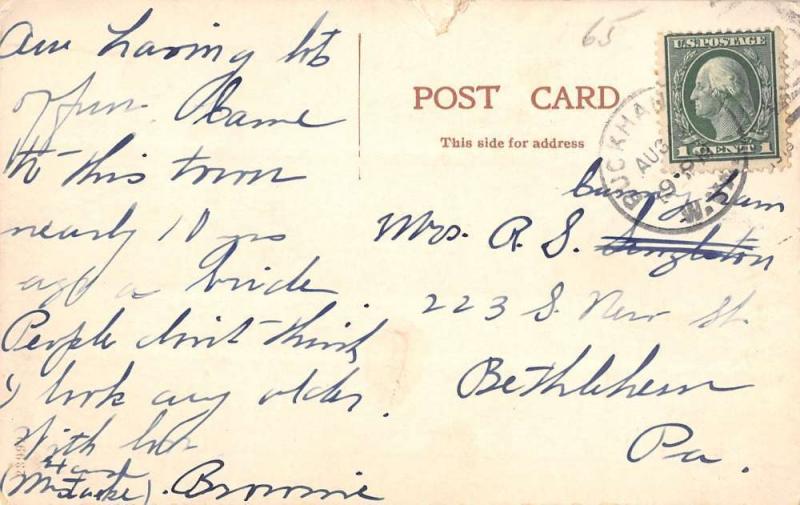 Am having lots
of fun. Came
to this town
nearly 10 yrs
ago a bride
People don't think
I look any older.
With love
Brownie
65
POST CARD
This side for address
U.S. POSTAGE
1 CENT 1
BUCKHANNON
AUG
9-
W.VA.
Cunningham
Mrs. R. S. Singleton
223 S. New St.
Bethlehem
Pa.